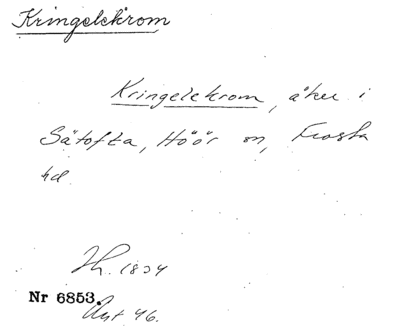 Kringelekrom
Kringelekrom, åker i
Sätofta, Höör sn, Frosta
hd
Th. 1834
Nr 6853.
Avt 46.